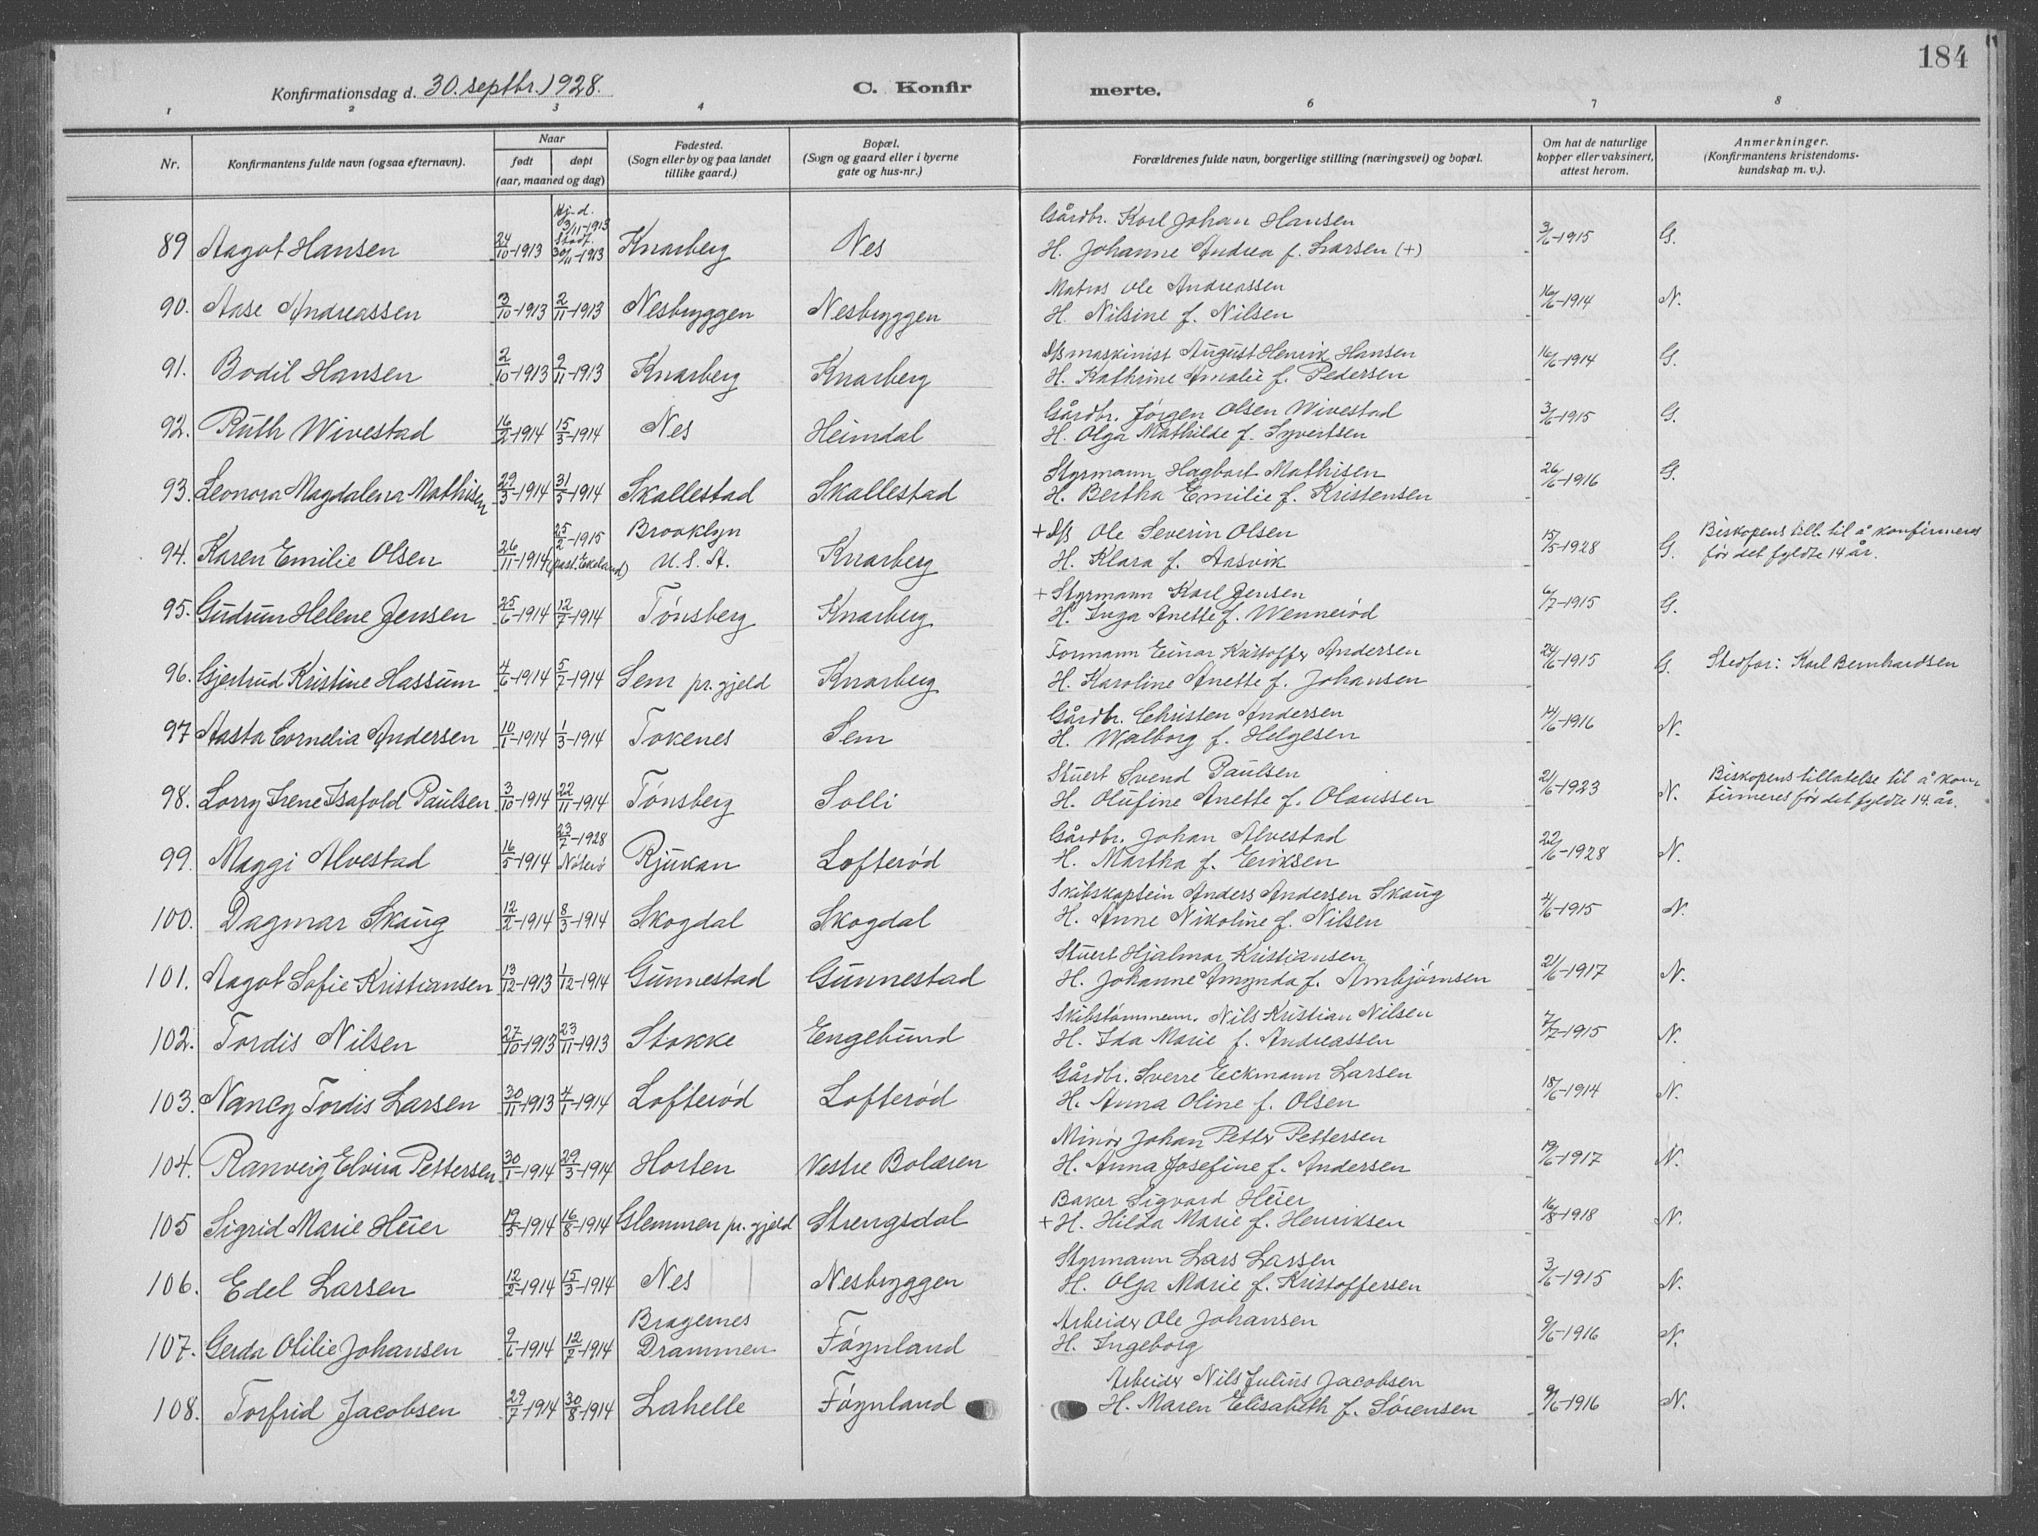 184
Konfirmationsdag d. 30. septbr. 1928. C. Konfir merte.
1 2 3 4 6 7 8
Nr. Konfirmantens fulde navn (ogsaa efternavn). Naar født døpt (aar, maaned og dag) Fødested. (Sogn eller by og paa landet tillike gaard.) Bopæl. (Sogn og gaard eller i byerne gate og hus-nr.) Forældrenes fulde navn, borgerlige stilling (næringsvei) og bopæl. Om hat de naturlige kopper eller vaksinert, attest herom. Anmerkninger. (Konfirmantens kristendoms-kundskap m. v.).
Hj. d. 3/11-1913 Gårdbr. Karl Johan Hansen
89 Aagot Hansen 24/10-1913 Stadf. 30/11-1913 Knarberg Nes H. Johanne Andrea f. Larsen (+) 3/6-1915 G.
Matros Ole Andreassen
90. Aase Andreassen 3/10-1913 2/11-1913 Nesbryggen Nesbryggen H. Nilsine f. Nilsen 16/6-1914 N.
D/s maskinist August Henrik Hansen
91. Bodil Hansen 2/10-1913 9/11-1913 Knarberg Knarberg H. Kathrine Amalie f. Pedersen 16/6-1914 G.
Gårdbr. Jørgen Olsen Wivestad
92. Ruth Wivestad 16/2-1914 15/3-1914 Nes Heimdal H. Olga Mathilde f. Syvertsen 3/6-1915 G.
Styrmann Hagbart Mathisen
93. Leonora Magdalena Mathisen 29/3-1914 31/5-1914 Skallestad Skallestad H. Bertha Emilie f. Kristensen 26/6-1916 G.
25/2-1915 Brooklyn + D/s Ole Severin Olsen Biskopens till. til å konfirmeres
94. Karen Emilie Olsen 26/11-1914 (past. Ekeland) U. S. A. Knarberg H. Klara f. Aasvik 15/5-1928 G. før det fyldte 14 år.
+ Styrmann Karl Jensen
95. Gudrun Helene Jensen 25/6-1914 12/7-1914 Tønsberg Knarberg H. Inga Anette f. Wennerød 6/7-1915 G.
Formann Einar Kristoffer Andersen
96. Gjertrud Kristine Hassum 4/6-1914 5/7-1914 Sem pr. gjeld Knarberg H. Karoline Anette f. Johansen 24/6-1915 G. Stedfar: Karl Bernhardsen
Gårdbr. Christen Andersen
97 Aasta Cornelia Andersen 10/1-1914 1/3-1914 Tokenes Sem H. Walborg f. Helgesen 14/6-1916 N.
Stuert Svend Paulsen Biskopens tillatelse til å kon-
98. Lorry Irene Isafold Paulsen 3/10-1914 22/11-1914 Tønsberg Solli H. Olufine Anette f. Olaussen 21/6-1923 N. firmeres før det fyldte 14. år.
23/7-1928 Gårdbr. Johan Alvestad
99. Maggi Alvestad 16/5-1914 Nøterø Rjukan Lofterød H. Martha f. Eriksen 22/6-1928 N.
Skibskaptein Anders Andersen Skaug
100. Dagmar Skaug 12/2-1914 8/3-1914 Skogdal Skogdal H. Anne Nikoline f. Nilsen 4/6-1915 N.
Stuert Hjalmar Kristiansen
101. Aagot Sofie Kristiansen 13/12-1913 1/12-1914 Gunnestad Gunnestad H. Johanne Amynda f. Arnbjørnsen 21/6-1917 N.
Skibstømmerm. Nils Kristian Nilsen
102. Tordis Nilsen 27/10-1913 23/11-1913 Stokke Engebund H. Ida Marie f. Andreassen 7/7-1915 N.
Gårdbr. Sverre Eckmann Larsen
103. Nancy Tordis Larsen 30/11-1913 4/1-1914 Lofterød Lofterød H. Anna Oline f. Olsen 18/6-1914 N.
Minør Johan Petter Pettersen
104. Ranveig Elvira Pettersen 30/1-1914 29/3-1914 Horten Vestre Bolæren H. Anna Josefine f. Andersen 19/6-1917 N.
Baker Sigvard Heier
105 Sigrid Marie Heier 19/5-1914 16/8-1914 Glemmen pr. gjeld Strengsdal + H. Hilda Marie f. Henriksen 16/8-1918 N.
Styrmann Lars Larsen
106. Edel Larsen 12/2-1914 15/3-1914 Nes Nesbryggen H. Olga Marie f. Kristoffersen 3/6-1915 N.
Bragernes Arbeider Ole Johansen
107. Gerda Otilie Johansen 9/6-1914 12/7-1914 Drammen Føynland H. Ingeborg 9/6-1916 N.
Arbeider Nils Julius Jacobsen
108. Torfrid Jacobsen 29/7-1914 30/8-1914 Lahelle Føynland H. Maren Elisabeth f. Sørensen 9/6-1916 N.